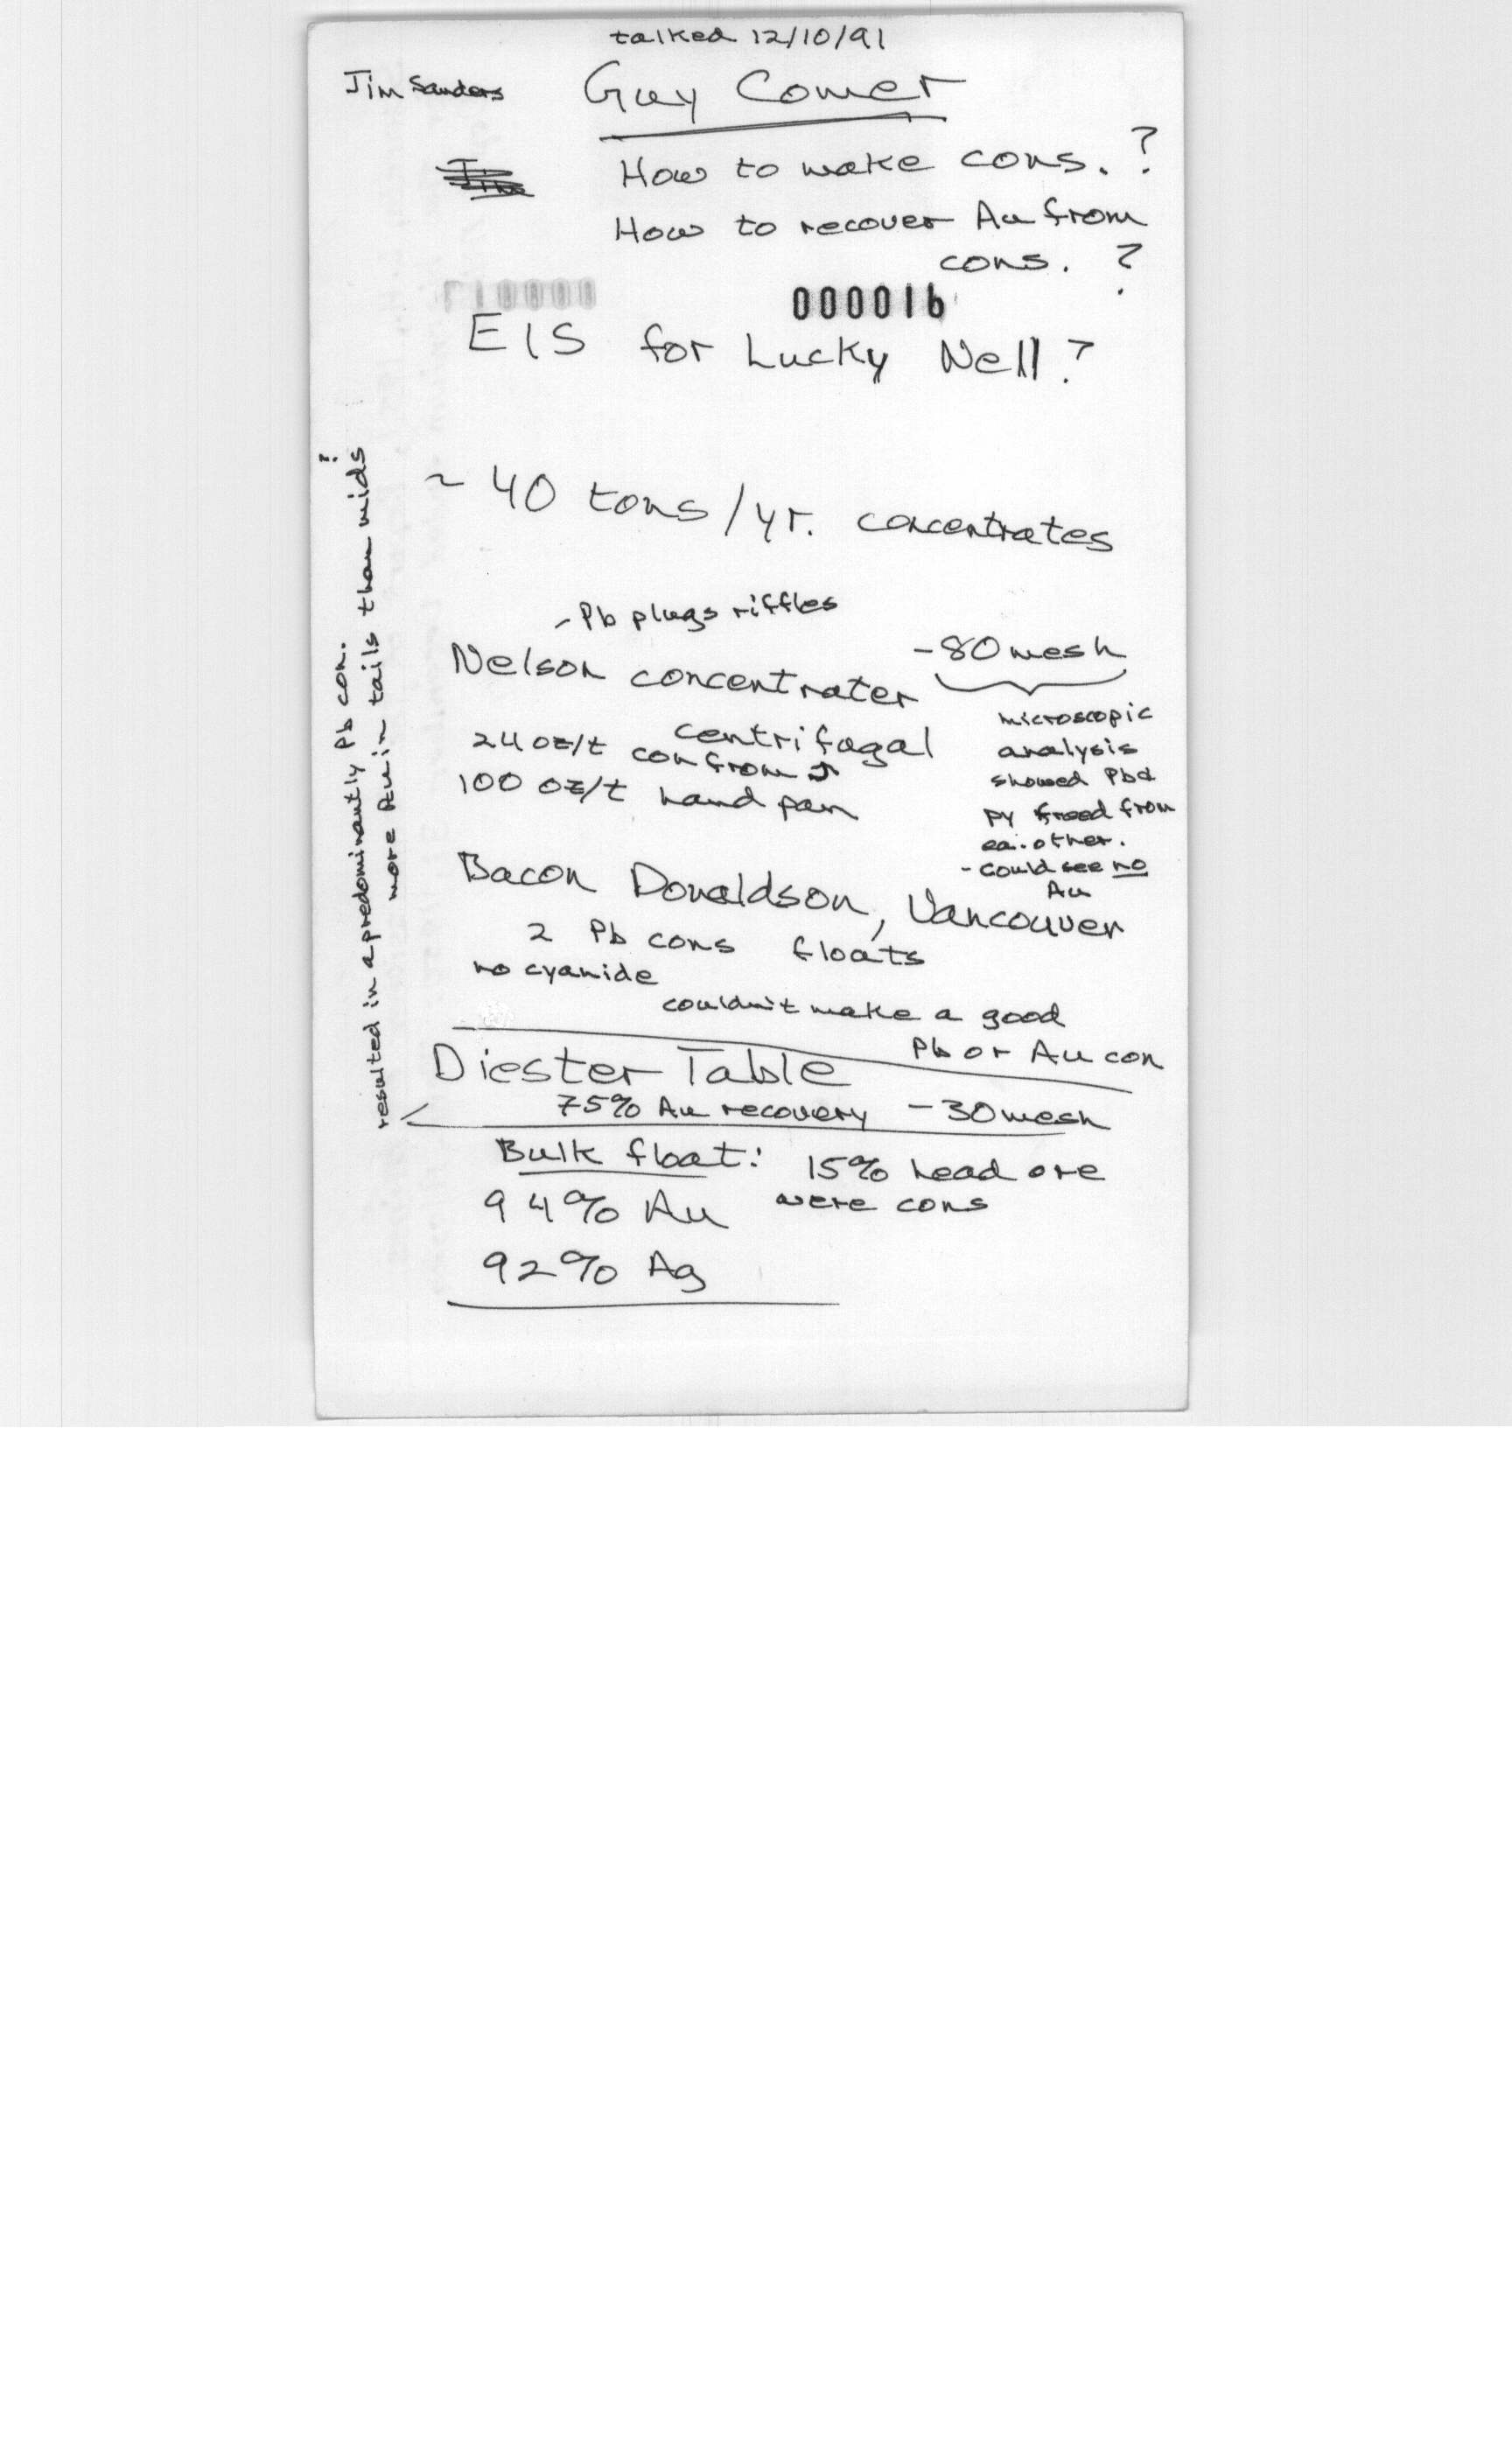 talked 12/10/91
Jim Sanders Guy Comer
How to make cons. ?
How to recover Au from
cons. ?
000016
EIS for Lucky Nell?
~ 40 tons/yr. concentrates
- Pb plugs riffles
Nelson concentrater -80 mesh
centrifugal
24 oz/t con from
100 oz/t hand pan
microscopic
analysis
showed Pb &
py freed from
ea. other.
- could see no
Au
Bacon Donaldson, Vancouver
2 Pb cons floats
no cyanide
couldn't make a good
Pb or Au con
Diester Table
75% Au recovery -30 mesh
resulted in a predominantly Pb con.
more Au in tails than mids ?
Bulk float: 15% head ore
were cons
94% Au
92% Ag